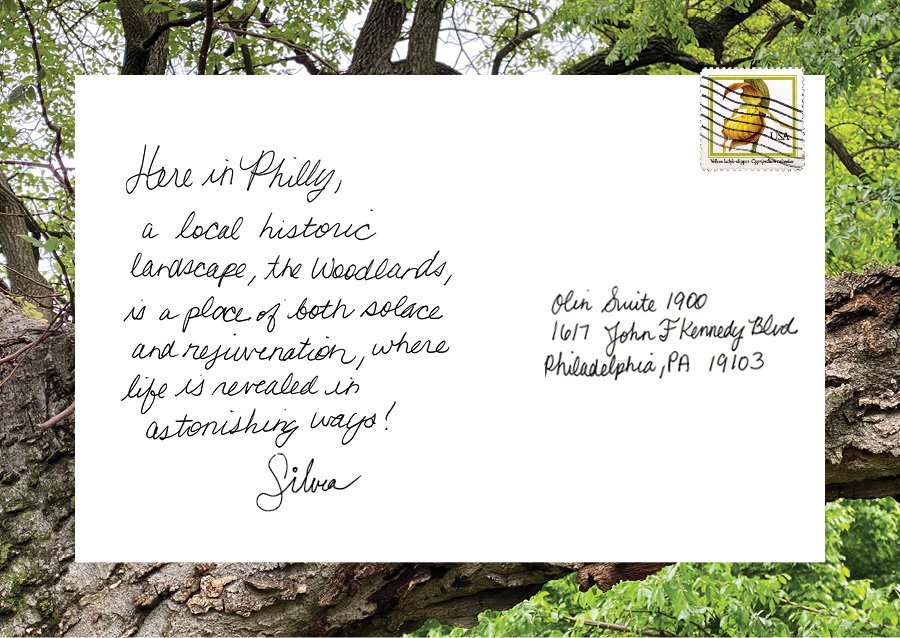 Here in Philly,
a local historic
landscape, the Woodlands,
is a place of both solace
and rejuvenation, where
life is revealed in
astonishing ways!
Silvia
USA
Yellow lady's-slipper Cypripedium calceolus
Olin Suite 1900
1617 John F Kennedy Blvd
Philadelphia, PA 19103